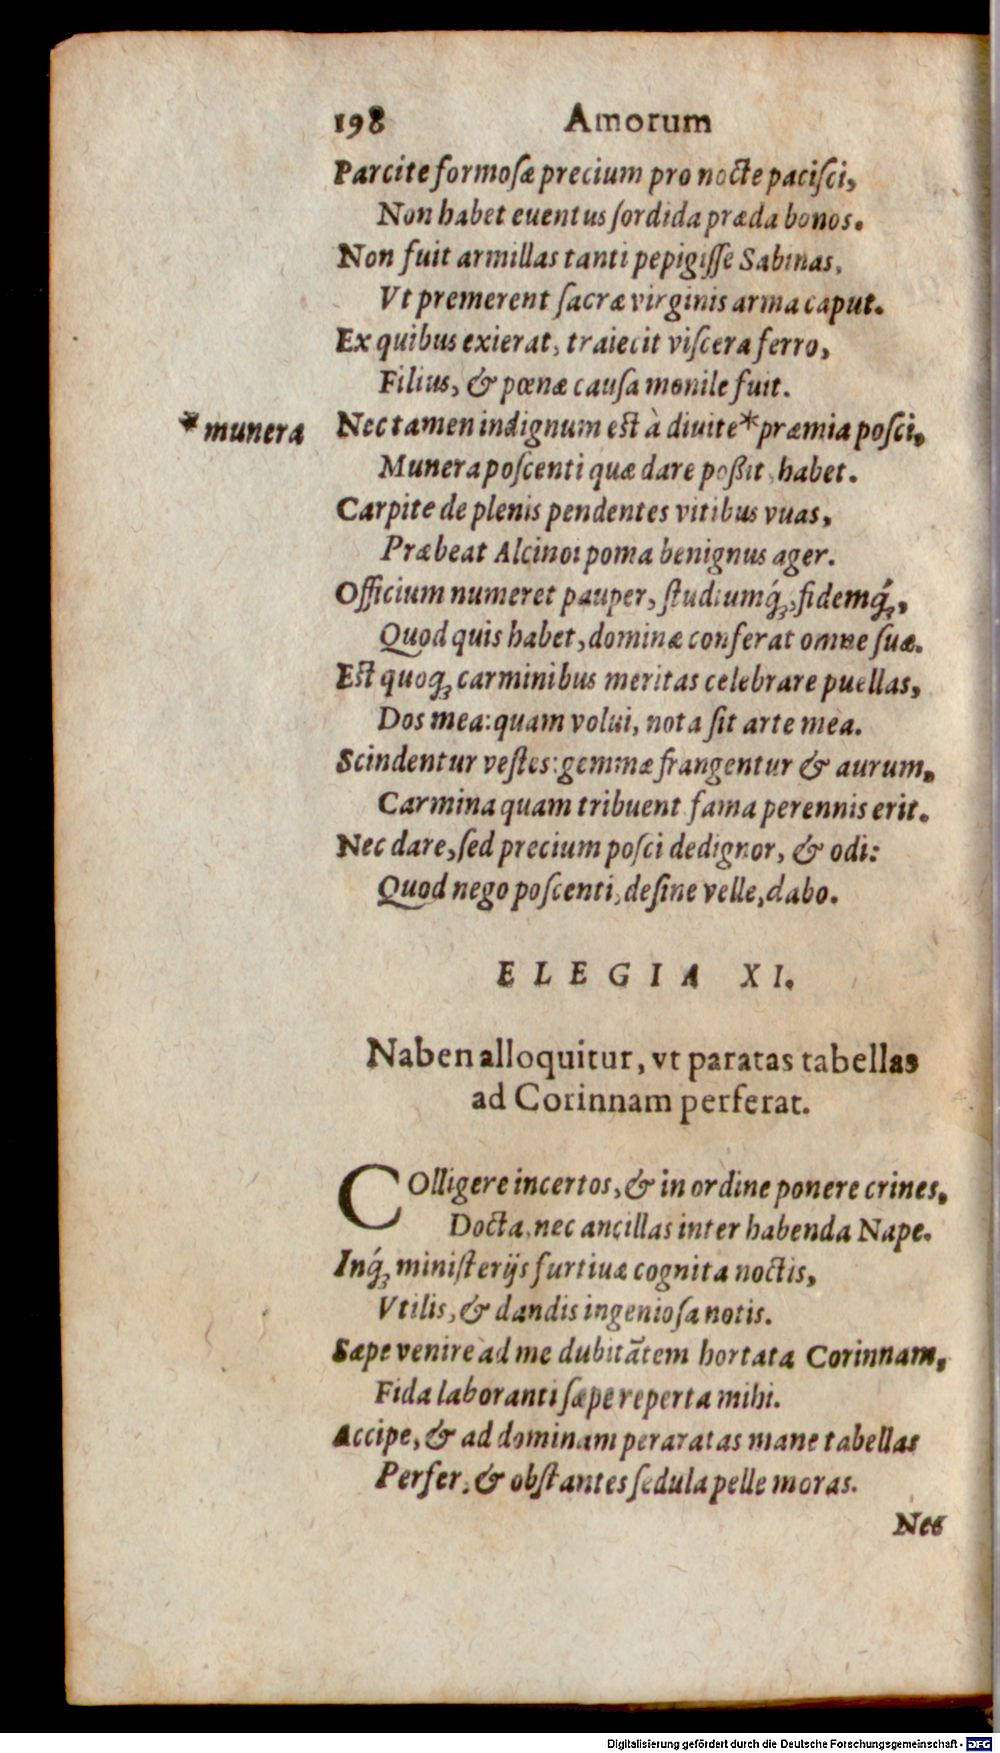 198 Amorum
Parcite formoſæ precium pro nocte paciſci,
Non habet euentus ſordida præda bonos.
Non fuit armillas tanti pepigiſſe Sabinas,
Vt premerent ſacræ virginis arma caput.
Ex quibus exierat, traiecit viſcera ferro,
Filius, & pœnæ cauſa monile fuit.
* munera Nec tamen indignum est à diuite * præmia poſci,
Munera poſcenti quæ dare poßit, habet.
Carpite de plenis pendentes vitibus vuas,
Præbeat Alcinoi poma benignus ager.
Officium numeret pauper, ſtudiumq́;, fidemq́;,
Quod quis habet, dominæ conferat omne ſuæ.
Est quoq; carminibus meritas celebrare puellas,
Dos mea: quam volui, nota ſit arte mea.
Scindentur veſtes: gemmæ frangentur & aurum,
Carmina quam tribuent fama perennis erit.
Nec dare, ſed precium poſci dedignor, & odi:
Quod nego poſcenti, deſine velle, dabo.
ELEGIA XI.
Naben alloquitur, vt paratas tabellas
ad Corinnam perferat.
COlligere incertos, & in ordine ponere crines,
Docta, nec ancillas inter habenda Nape.
Inq́; miniſterijs furtiuæ cognita noctis,
Vtilis, & dandis ingenioſa notis.
Sæpe venire ad me dubitãtem hortata Corinnam,
Fida laboranti ſæpe reperta mihi.
Accipe, & ad dominam peraratas mane tabellas
Perfer, & obſtantes ſedula pelle moras.
Nec
Digitalisierung gefördert durch die Deutsche Forschungsgemeinschaft - DFG